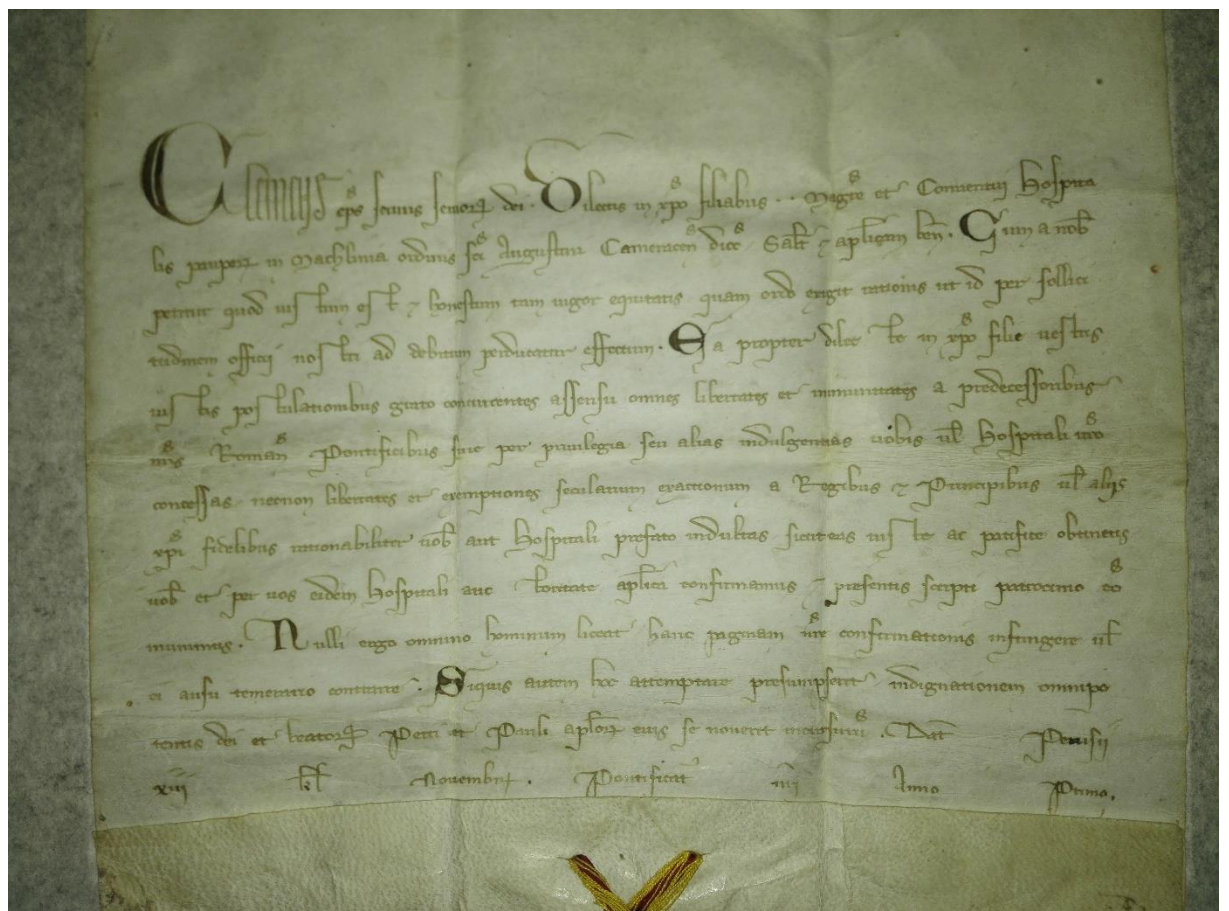 Clemens ep̄s seruus seruoꝝ dei. Dilectis in xp̄o filiabus . . Magr̄e et Conuentui Hospita
lis pauperꝝ in Machlinia ordinis sc̄i Augustini Cameracen̄ dioc̄ Sal̄t ⁊ apl̄icam ben̄. Cum a nob̄
petitur quod iustum est ⁊ honestum tam uigor equitatis quam ordo exigit rationis ut id per sollici
tudinem officij nostri ad debitum perducatur effectum. Ea propter dilecte in xp̄o filie uestris
iustis postulationibus grato concurrentes assensu omnes libertates et immunitates a predecessoribus
nr̄is Roman̄ Pontificibus siue per priuilegia seu alias indulgentias uobis ul̄ Hospitali ur̄o
concessas necnon libertates et exemptiones secularium exactionum a Regibus ⁊ Principibus ul̄ alijs
xp̄i fidelibus rationabiliter uob̄ aut Hospitali prefato indultas sicut eas iuste ac pacifice obtinetis
uob̄ et per uos eidem Hospitali auctoritate apl̄ica confirmamus ⁊ presentis scripti patrocinio co̅
munimus. Nulli ergo omnino hominum liceat hanc paginam nr̄e confirmationis infringere ul̄
ei ausu temerario contraire. Siquis autem hoc attemptare presumpserit indignationem omnipo
tentis dei et beatorꝝ Petri et Pauli apl̄orꝝ eius se nouerit incursurū. Dat̄ Perusii
xiii kl̄ Nouembrꝭ. Pontificat̄ nr̄i Anno Primo.